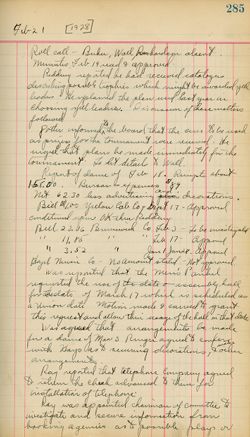 285
Feb 21 [1928]
Roll call - Baker, Wall, Richardson absent
Minutes Feb 14 read & approved
Pudding reported he had received catalogs
describing possible trophies which might be awarded yell
leaders. He explained the plan used last year in
choosing yell leaders. Discussion of these matters
followed
Potter informed the board that the cues to be used
as prizes for the tournament were received. He
urged that plans be made immediately for the
tournament.
Report of dance of Feb 18. Receipts about
Net 62.30 less advertising and decorations.
Bill $1.00 Yellow Cab Co, Sept 17 - Approved
conditioned upon OK
Bill 2.36 Brunswick Co. Feb 3 - to be investigated
" 11.15 " Feb 17 - Approved
" 3.52
Music Co - No amount stated - Not approved
was reported that the Men's Council
requested the use of the date & assembly hall
for the date of March 17 which is scheduled as
a Union date. Motion made & carried to grant
this request and allow their usage of the hall on that date
Was agreed that arrangements be made
for a dance of Mar 3. agreed to confer
with Hayes as to securing decorations, & other
arrangements.
Kay reported that telephone company agreed
to return the check advanced to them for
installation of telephone.
Kay was appointed chairman of committee to
investigate and secure information from
booking agencies as to possible plays or